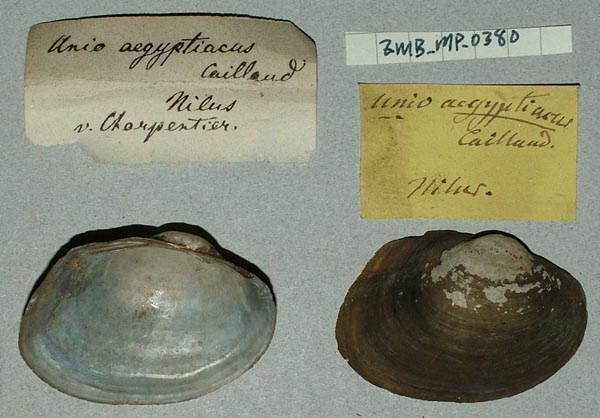 Unio aegyptiacus
Cailland
Nilus
v. Charpentier.
ZMB_MP_0380
Unio aegyptiacus
Cailland.
Nilus.